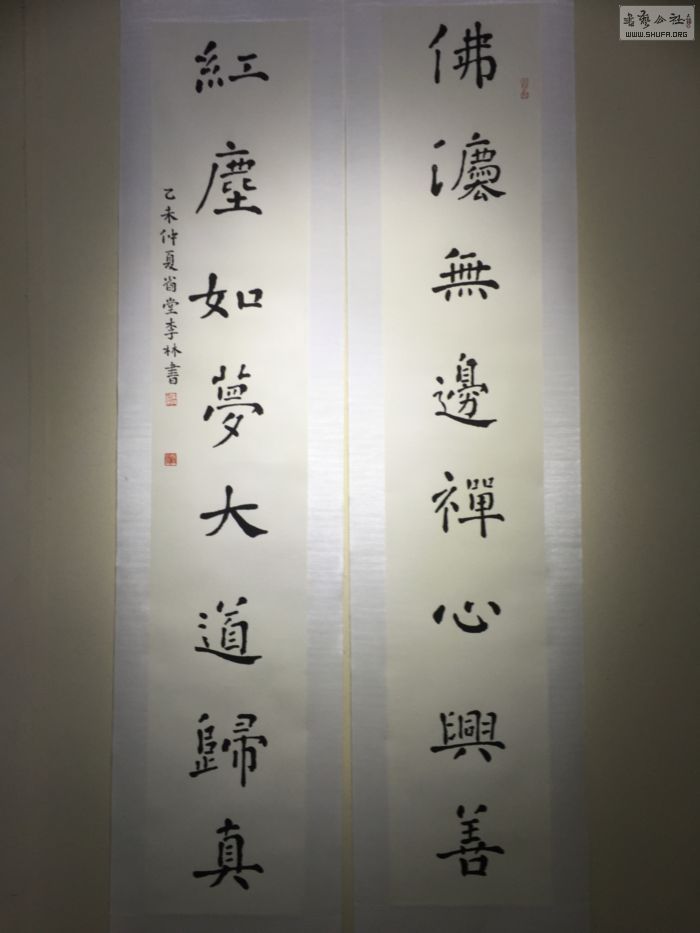 佛瀍無邊禪心興善
紅塵如夢大道歸真
乙未仲夏省堂李林書
WWW.SHUFA.ORG